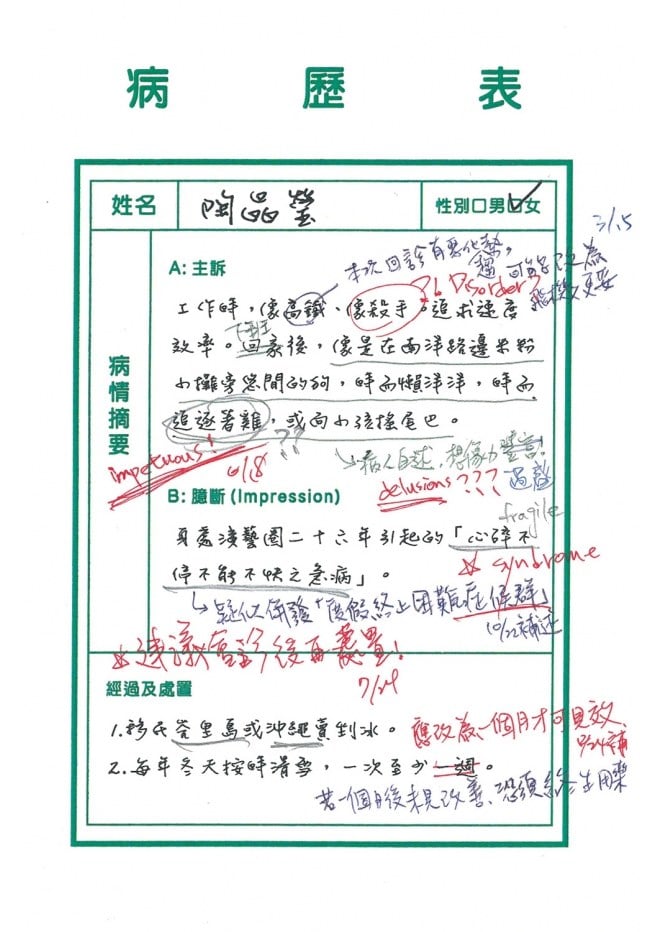 病歷表
姓名 陶晶瑩 性別□男□女
3/15
病情摘要
A: 主訴
本次回診有惡化趨
可改為
飛機更妥
Disorder?
工作時，像高鐵、像殺手。追求速度
效率。回家後，像是在南洋路邊米粉
小攤旁悠閒的狗，時而懶洋洋，時而
追逐著雞，或向小孩搖尾巴。
impetuous!
6/18
??
病人自述，想像力豐富!
過盛
delusions???
B: 臆斷 (Impression)
fragile
身處演藝圈二十六年引起的「心碎不
停不能不快之急病」。
syndrome
疑似併發「度假終止困難症候群」
10/22補述
建議會診後再處置!
7/24
經過及處置
1.移民峇里島或沖繩賣剉冰。
應改為一個月才可見效、
2.每年冬天按時滑雪，一次至少一週。
若一個月後未見改善、恐須終生用藥